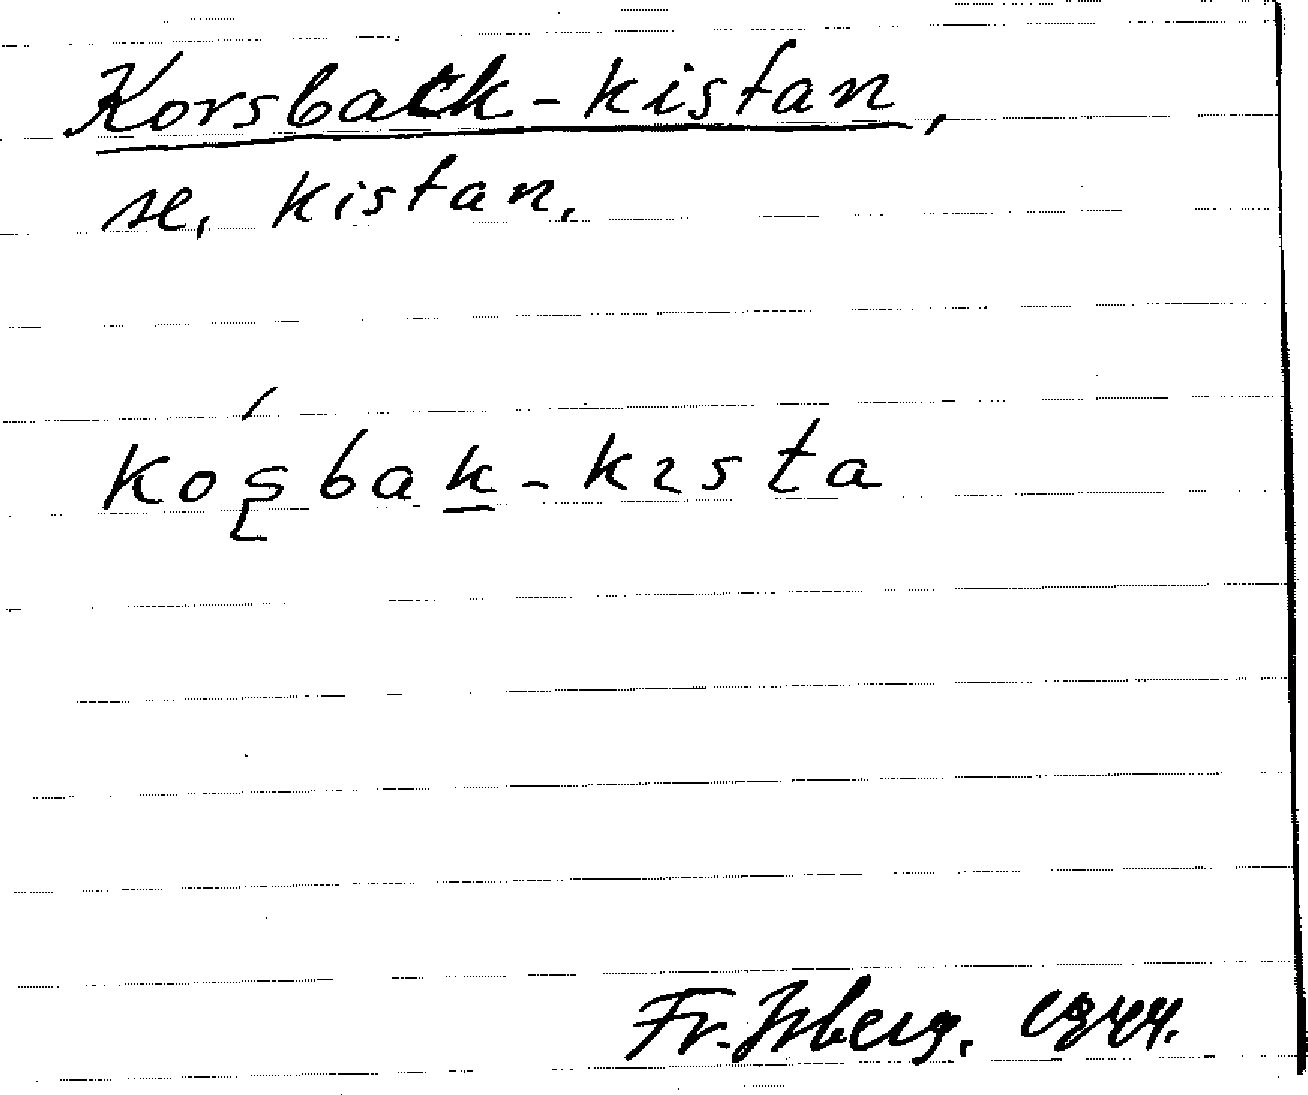 Korsback-kistan,
se, kistan.
koşbak-kısta
Fr. Isberg. 1944.